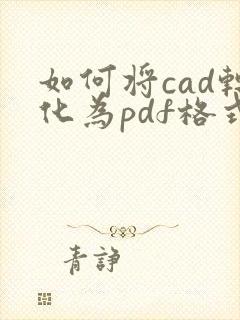 如何将cad转
化为pdf格式
青諍